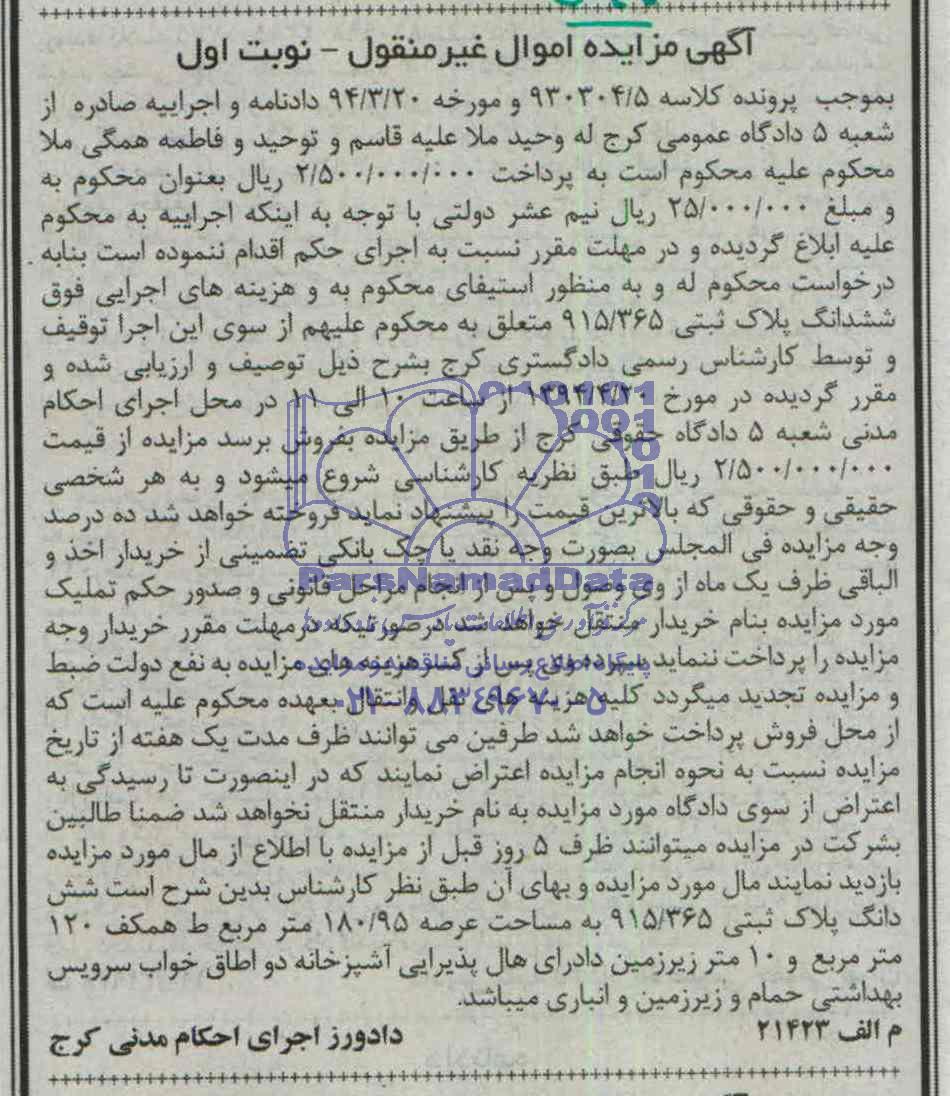 آگهی مزایده اموال غیرمنقول - نوبت اول
بموجب پرونده کلاسه ۹۳۰۳۰۴/۵ و مورخه ۹۴/۳/۲۰ دادنامه و اجراییه صادره از
شعبه ۵ دادگاه عمومی کرج له وحید ملا علیه قاسم و توحید و فاطمه همگی ملا
محکوم علیه محکوم است به پرداخت ۲/۵۰۰/۰۰۰/۰۰۰ ریال بعنوان محکوم به
و مبلغ ۲۵/۰۰۰/۰۰۰ ریال نیم عشر دولتی با توجه به اینکه اجراییه به محکوم
علیه ابلاغ گردیده و در مهلت مقرر نسبت به اجرای حکم اقدام ننموده است بنابه
درخواست محکوم له و به منظور استیفای محکوم به و هزینه های اجرایی فوق
ششدانگ پلاک ثبتی ۹۱۵/۳۶۵ متعلق به محکوم علیهم از سوی این اجرا توقیف
و توسط کارشناس رسمی دادگستری کرج بشرح ذیل توصیف و ارزیابی شده و
مقرر گردیده در مورخ ۱۳۹۴/۴/۲۰ از ساعت ۱۰ الی ۱۱ در محل اجرای احکام
مدنی شعبه ۵ دادگاه حقوقی کرج از طریق مزایده بفروش برسد مزایده از قیمت
۲/۵۰۰/۰۰۰/۰۰۰ ریال طبق نظریه کارشناسی شروع میشود و به هر شخصی
حقیقی و حقوقی که بالاترین قیمت را پیشنهاد نماید فروخته خواهد شد ده درصد
وجه مزایده فی المجلس بصورت وجه نقد یا چک بانکی تضمینی از خریدار اخذ و
الباقی ظرف یک ماه از وی وصول و پس از انجام مراحل قانونی و صدور حکم تملیک
مورد مزایده بنام خریدار منتقل خواهد شد درصورتیکه درمهلت مقرر خریدار وجه
مزایده را پرداخت ننماید سپرده وی پس از کسر هزینه های مزایده به نفع دولت ضبط
و مزایده تجدید میگردد کلیه هزینه های نقل وانتقال بعهده محکوم علیه است که
از محل فروش پرداخت خواهد شد طرفین می توانند ظرف مدت یک هفته از تاریخ
مزایده نسبت به نحوه انجام مزایده اعتراض نمایند که در اینصورت تا رسیدگی به
اعتراض از سوی دادگاه مورد مزایده به نام خریدار منتقل نخواهد شد ضمنا طالبین
بشرکت در مزایده میتوانند ظرف ۵ روز قبل از مزایده با اطلاع از مال مورد مزایده
بازدید نمایند مال مورد مزایده و بهای آن طبق نظر کارشناس بدین شرح است شش
دانگ پلاک ثبتی ۹۱۵/۳۶۵ به مساحت عرصه ۱۸۰/۹۵ متر مربع ط همکف ۱۲۰
متر مربع و ۱۰ متر زیرزمین دادرای هال پذیرایی آشپزخانه دو اطاق خواب سرویس
بهداشتی حمام و زیرزمین و انباری میباشد.
م الف ۲۱۴۲۳
دادورز اجرای احکام مدنی کرج
ParsNamadData
۰۲۱-۸۸۳۴۹۶۷۰-۵